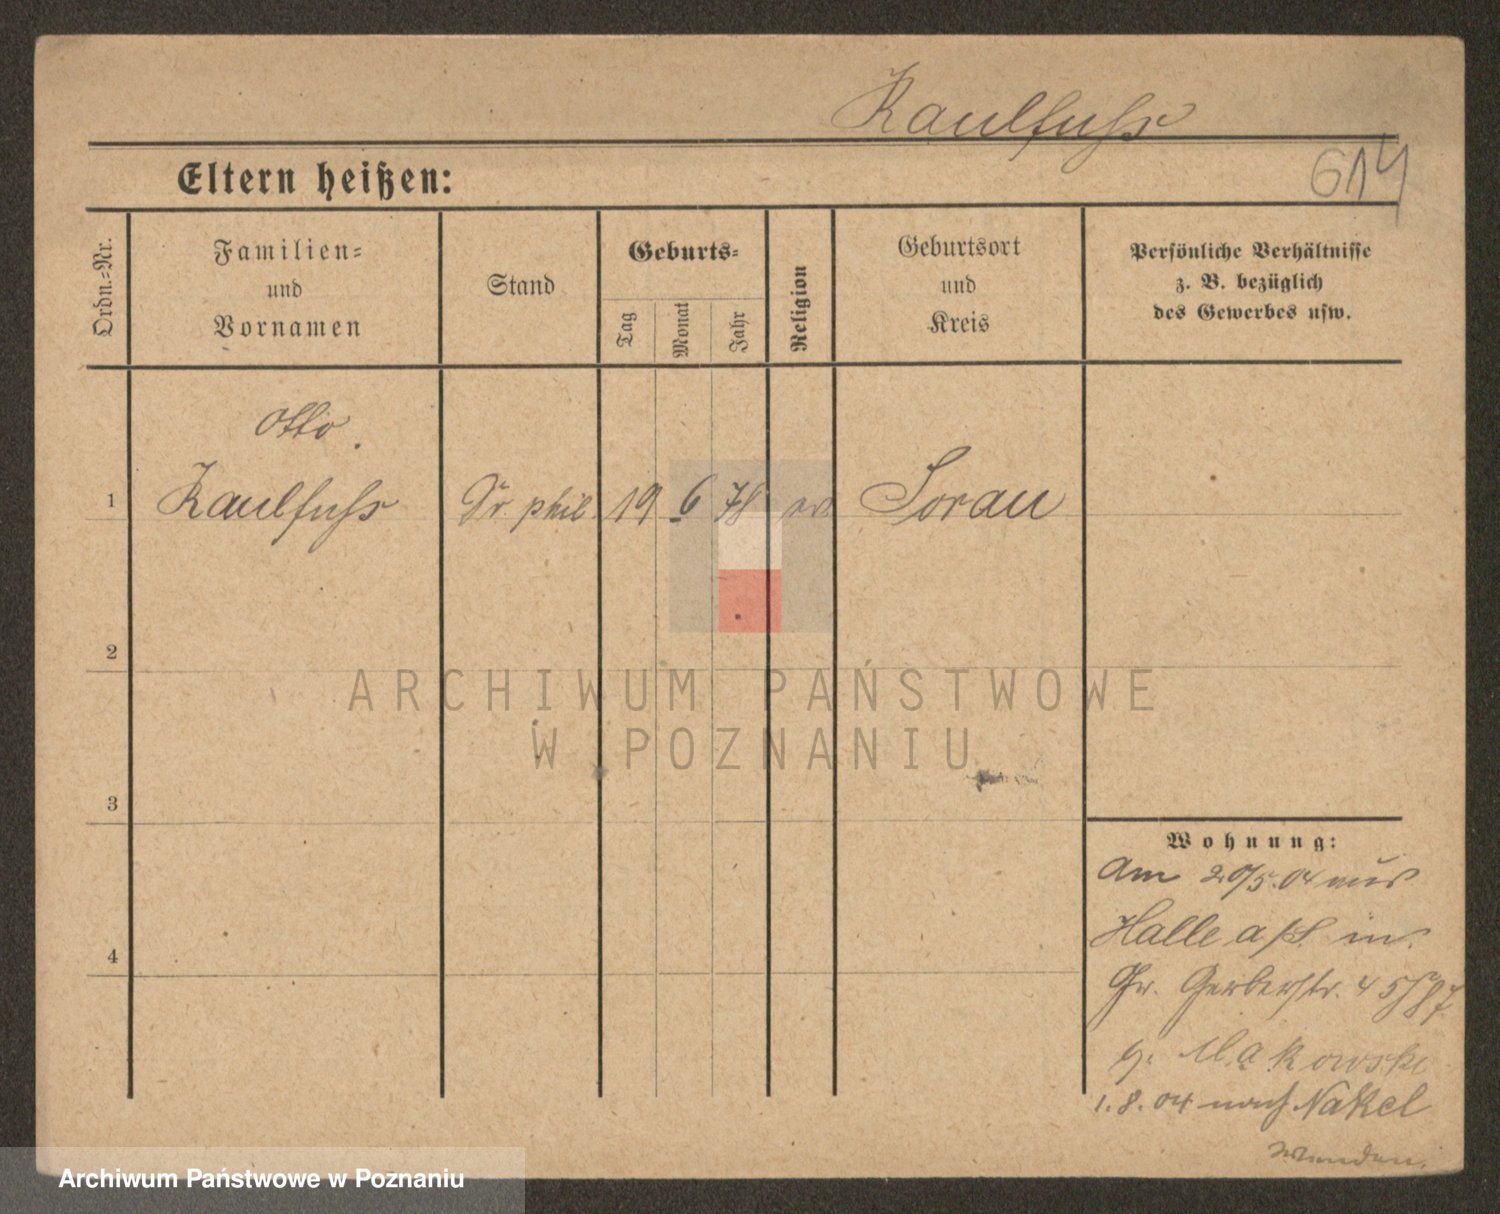 Kaulfuss
Eltern heißen:
614
Ordn.=Nr.
Familien=
und
Vornamen
Stand
Geburts=
Tag
Monat
Jahr
Religion
Geburtsort
und
Kreis
Persönliche Verhältnisse
z. B. bezüglich
des Gewerbes usw.
Otto
1 Kaulfuss Dr phil. 19 6 78 ev Sorau
2
3
4
ARCHIWUM PAŃSTWOWE
W POZNANIU
Wohnung:
Am 20/5.04 aus
Halle a/S. in
Gr. Gerberstr. 4
b. Makowski
1.8.04 nach Nakel
Archiwum Państwowe w Poznaniu